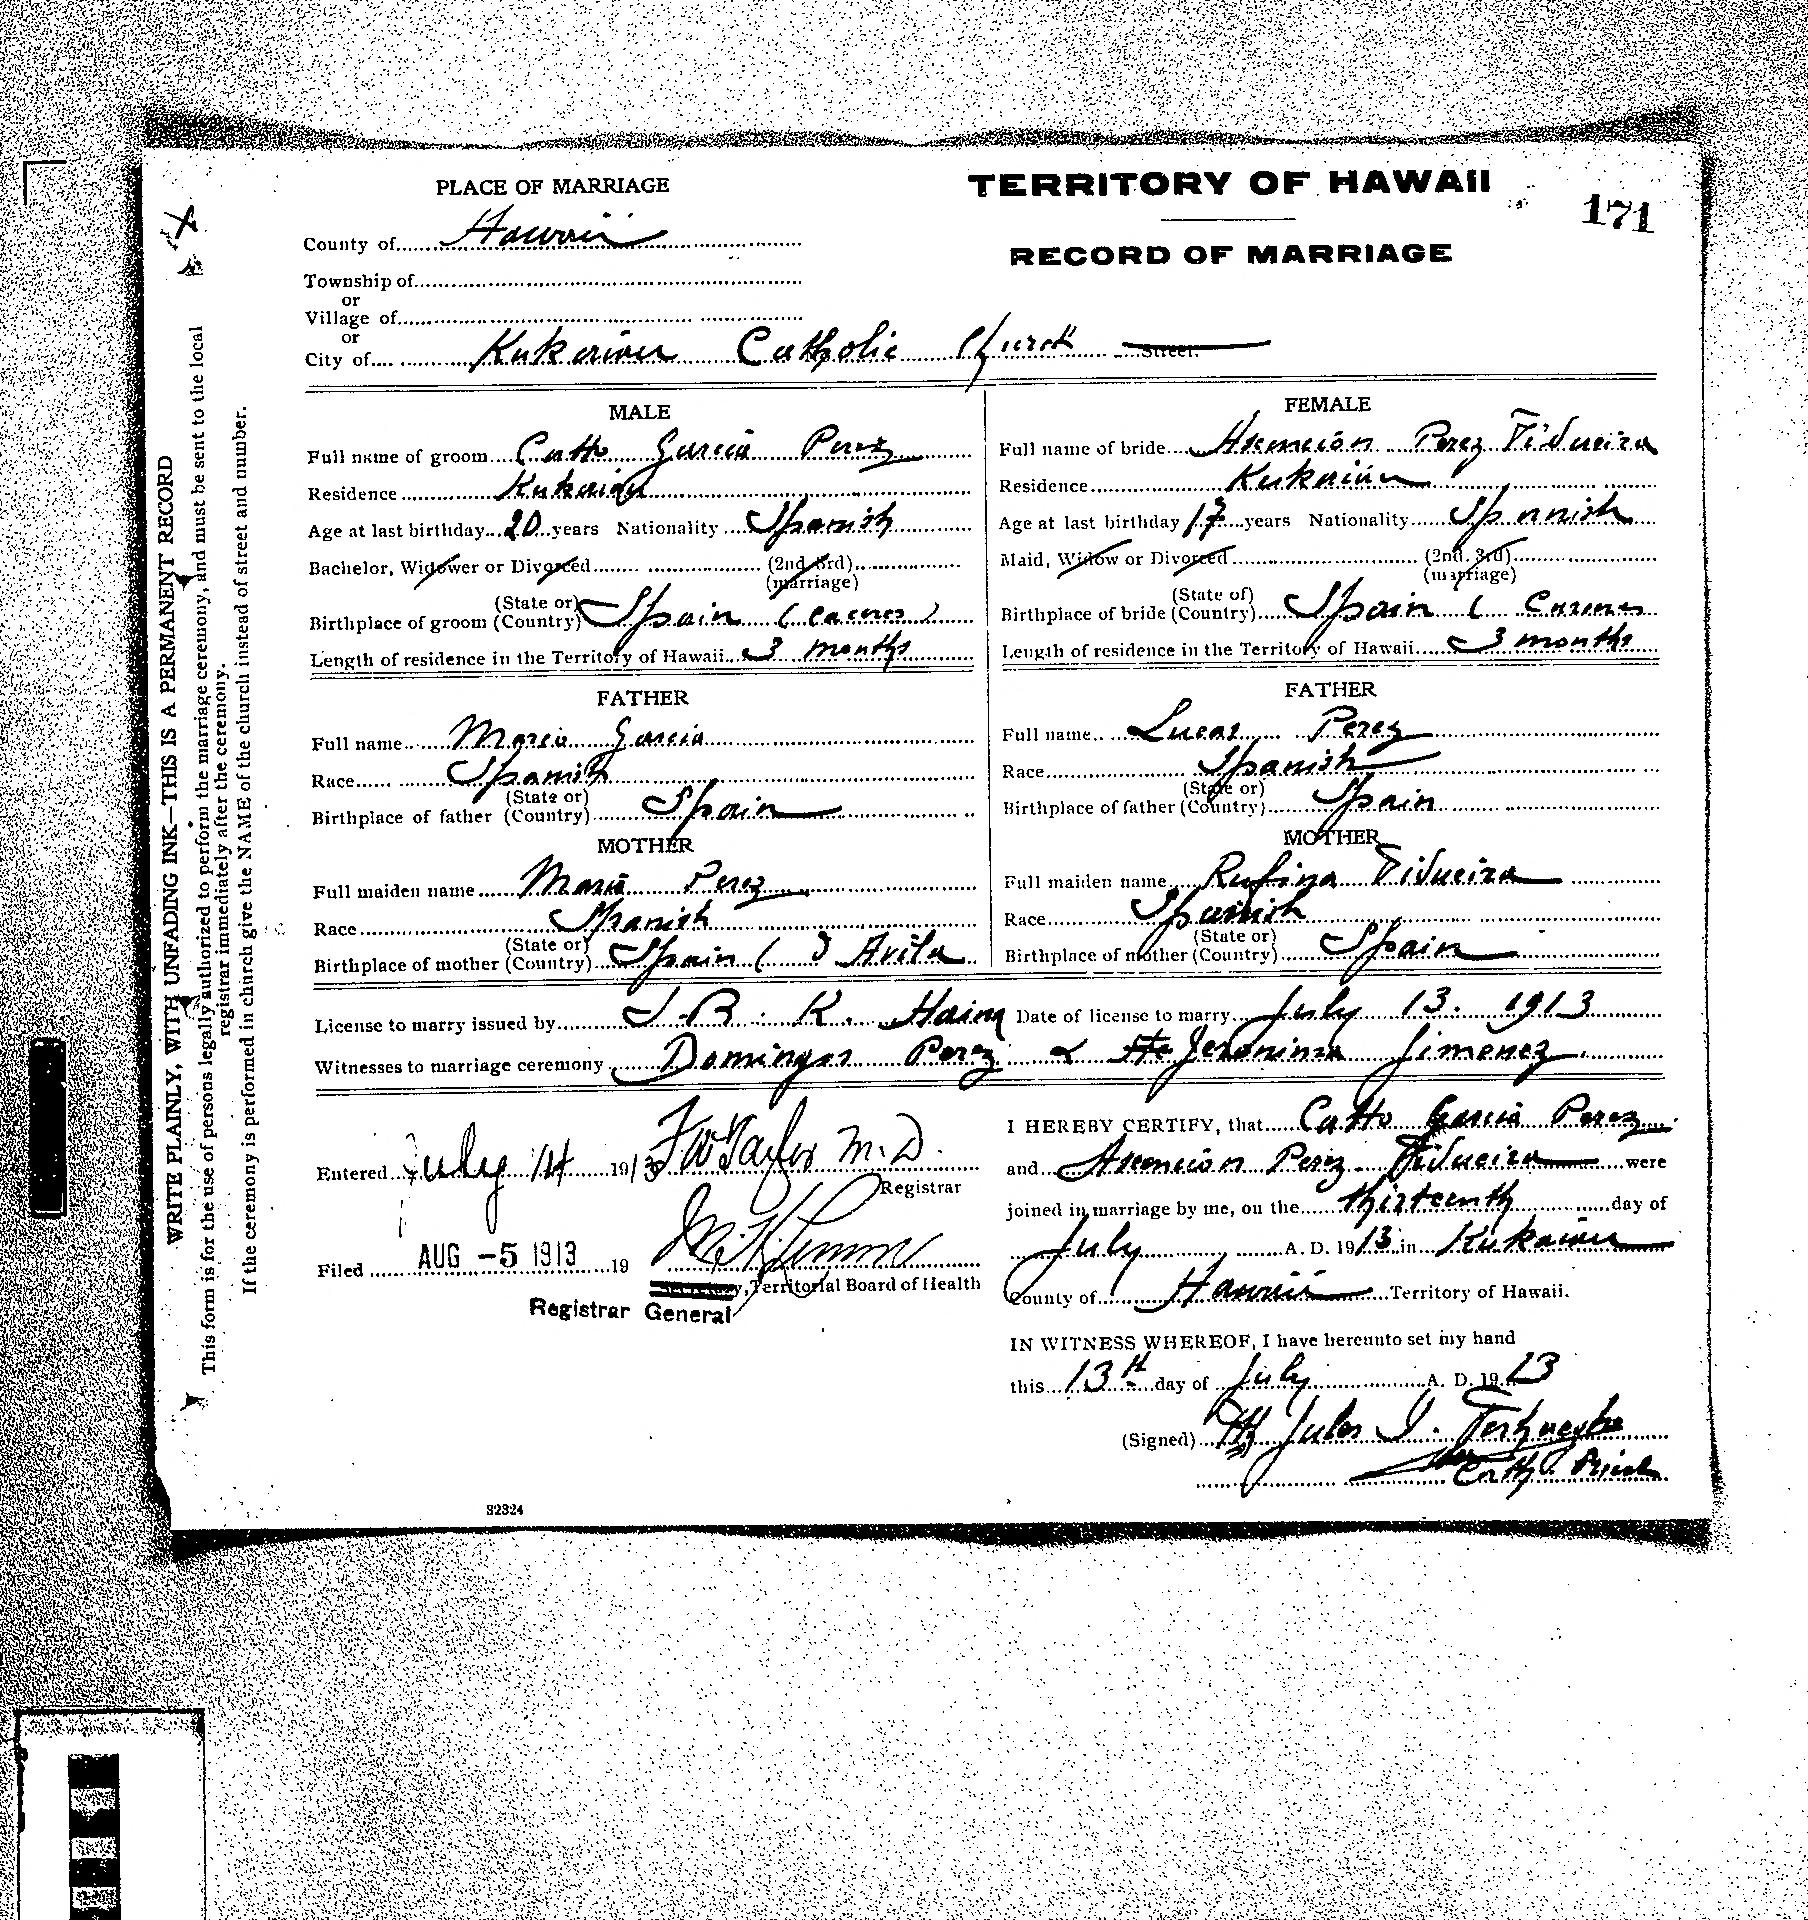 PLACE OF MARRIAGE
TERRITORY OF HAWAII
171
County of Hawaii
RECORD OF MARRIAGE
Township of
or
Village of
or
City of Kukaiau Catholic Church Street.
MALE
Full name of groom Catto Garcia Perez
Residence Kukaiau
Age at last birthday 20 years Nationality Spanish
Bachelor, Widower or Divorced (2nd 3rd)
(marriage)
Birthplace of groom (State or) (Country) Spain (Caceres)
Length of residence in the Territory of Hawaii 3 months
FATHER
Full name Garcia
Race Spanish
Birthplace of father (State or) (Country) Spain
MOTHER
Full maiden name Maria Perez
Race Spanish
Birthplace of mother (State or) (Country) Spain ( Avila
FEMALE
Full name of bride Asencion Perez Tidueira
Residence Kukaiau
Age at last birthday 17 years Nationality Spanish
Maid, Widow or Divorced (2nd. 3rd)
(marriage)
Birthplace of bride (State of) (Country) Spain ( Caceres
Length of residence in the Territory of Hawaii 3 months
FATHER
Full name Lucas Perez
Race Spanish
Birthplace of father (State or) (Country) Spain
MOTHER
Full maiden name Rufina Tidueira
Race Spanish
Birthplace of mother (State or) (Country) Spain
License to marry issued by J. R. K. Haina Date of license to marry July 13. 1913
Witnesses to marriage ceremony Domingos Perez & Jeronima Jimenez
Entered July 14 1913 F W Taylor M.D.
Registrar
Filed AUG -5 1913 19
Secretary, Territorial Board of Health
Registrar General
I HEREBY CERTIFY, that Catto Garcia Perez
and Asencion Perez Tidueira were
joined in marriage by me, on the thirteenth day of
July A. D. 1913 in Kukaiau
County of Hawaii Territory of Hawaii.
IN WITNESS WHEREOF, I have hereunto set my hand
this 13th day of July A. D. 1913
(Signed) Jules
Cath. Priest
32324
WRITE PLAINLY, WITH UNFADING INK—THIS IS A PERMANENT RECORD
This form is for the use of persons legally authorized to perform the marriage ceremony, and must be sent to the local
registrar immediately after the ceremony.
If the ceremony is performed in church give the NAME of the church instead of street and number.